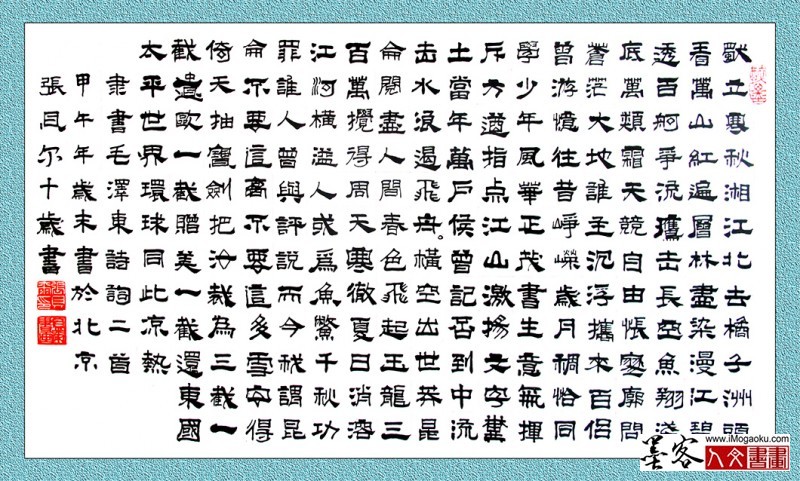 獨立寒秋湘江北去橘子洲頭
看萬山紅遍層林盡染漫江碧
透百舸爭流鷹击長空魚翔淺
底萬類霜天競自由悵寥廓問
蒼茫大地誰主沉浮攜來百侶
曾游憶往昔崢嶸歲月稠恰同
學少年風華正茂書生意氣揮
斥方遒指点江山激揚文字糞
土當年萬戶侯曾記否到中流
击水浪遏飛舟。橫空出世莽昆
侖閱盡人間春色飛起玉龍三
百萬攪得周天寒徹夏日消溶
江河橫溢人或爲魚鱉千秋功
罪誰人曾與評說而今我謂昆
侖不要這高不要這多雪安得
倚天抽寶劍把汝裁為三截一
截遺歐一截贈美一截還東國
太平世界環球同此凉熱
隶書毛澤東詩詞二首
甲午年歲末書於北京
張尔十歲書
墨客
www.iMogaoku.com
人文書畫